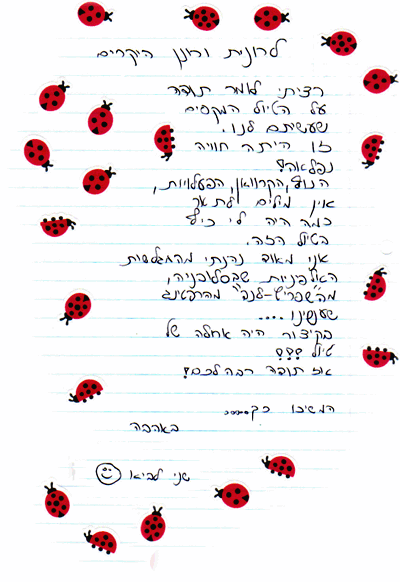 לרונית ורונן היקרים
רציתי לומר תודה
על הטיול המקסים
שעשיתם לנו.
זו היתה חוויה
נפלאה!
הנוף, הקרוואן, הפעלויות,
אין מילים לתאר
כמה היה לי כיף
בטיול הזה.
אני מאוד נהנתי מהמגלשות
האלפניות שבסלובניה,
מה"שפריץ-לנד" מהרפטינג
שעשינו ....
בקיצור היה אחלה של
טיול !!!
אז תודה רבה לכם!
המשיכו כך.....
באהבה
שני לביא